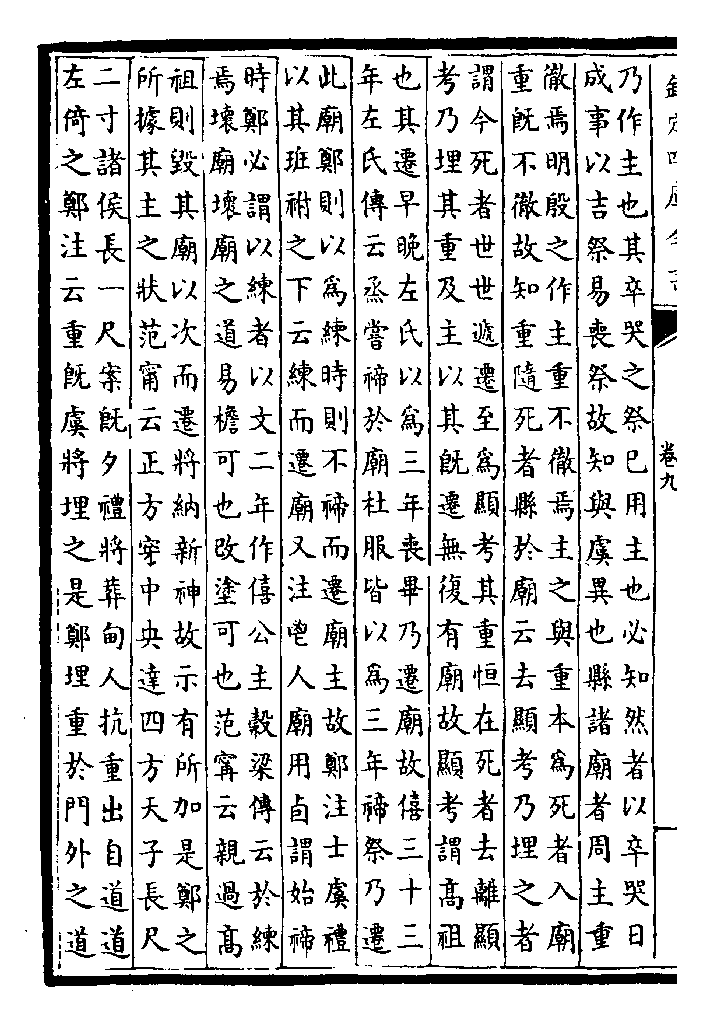 欽定四庫全書
卷九
乃作主也其卒哭之祭已用主也必知然者以卒哭日
成事以吉祭易喪祭故知與虞異也縣諸廟者周主重
徹焉明殷之作主重不徹焉主之與重本為死者入廟
重旣不徹故知重隨死者縣於廟云去顯考乃埋之者
謂今死者世世遞遷至為顯考其重恒在死者去離顯
考乃埋其重及主以其旣遷無復有廟故顯考謂高祖
也其遷早晚左氏以為三年喪畢乃遷廟故僖三十三
年左氏傳云烝嘗禘於廟杜服皆以為三年禘祭乃遷
此廟鄭則以為練時則不禘而遷廟主故鄭注士虞禮
以其班祔之下云練而遷廟又注鬯人廟用卣謂始禘
時鄭必謂以練者以文二年作僖公主穀梁傳云於練
焉壞廟壞廟之道易檐可也改塗可也范甯云親過高
祖則毀其廟以次而遷將納新神故示有所加是鄭之
所據其主之狀范甯云正方穿中央達四方天子長尺
二寸諸侯長一尺案旣夕禮將葬甸人抗重出自道道
左倚之鄭注云重旣虞將埋之是鄭埋重於門外之道